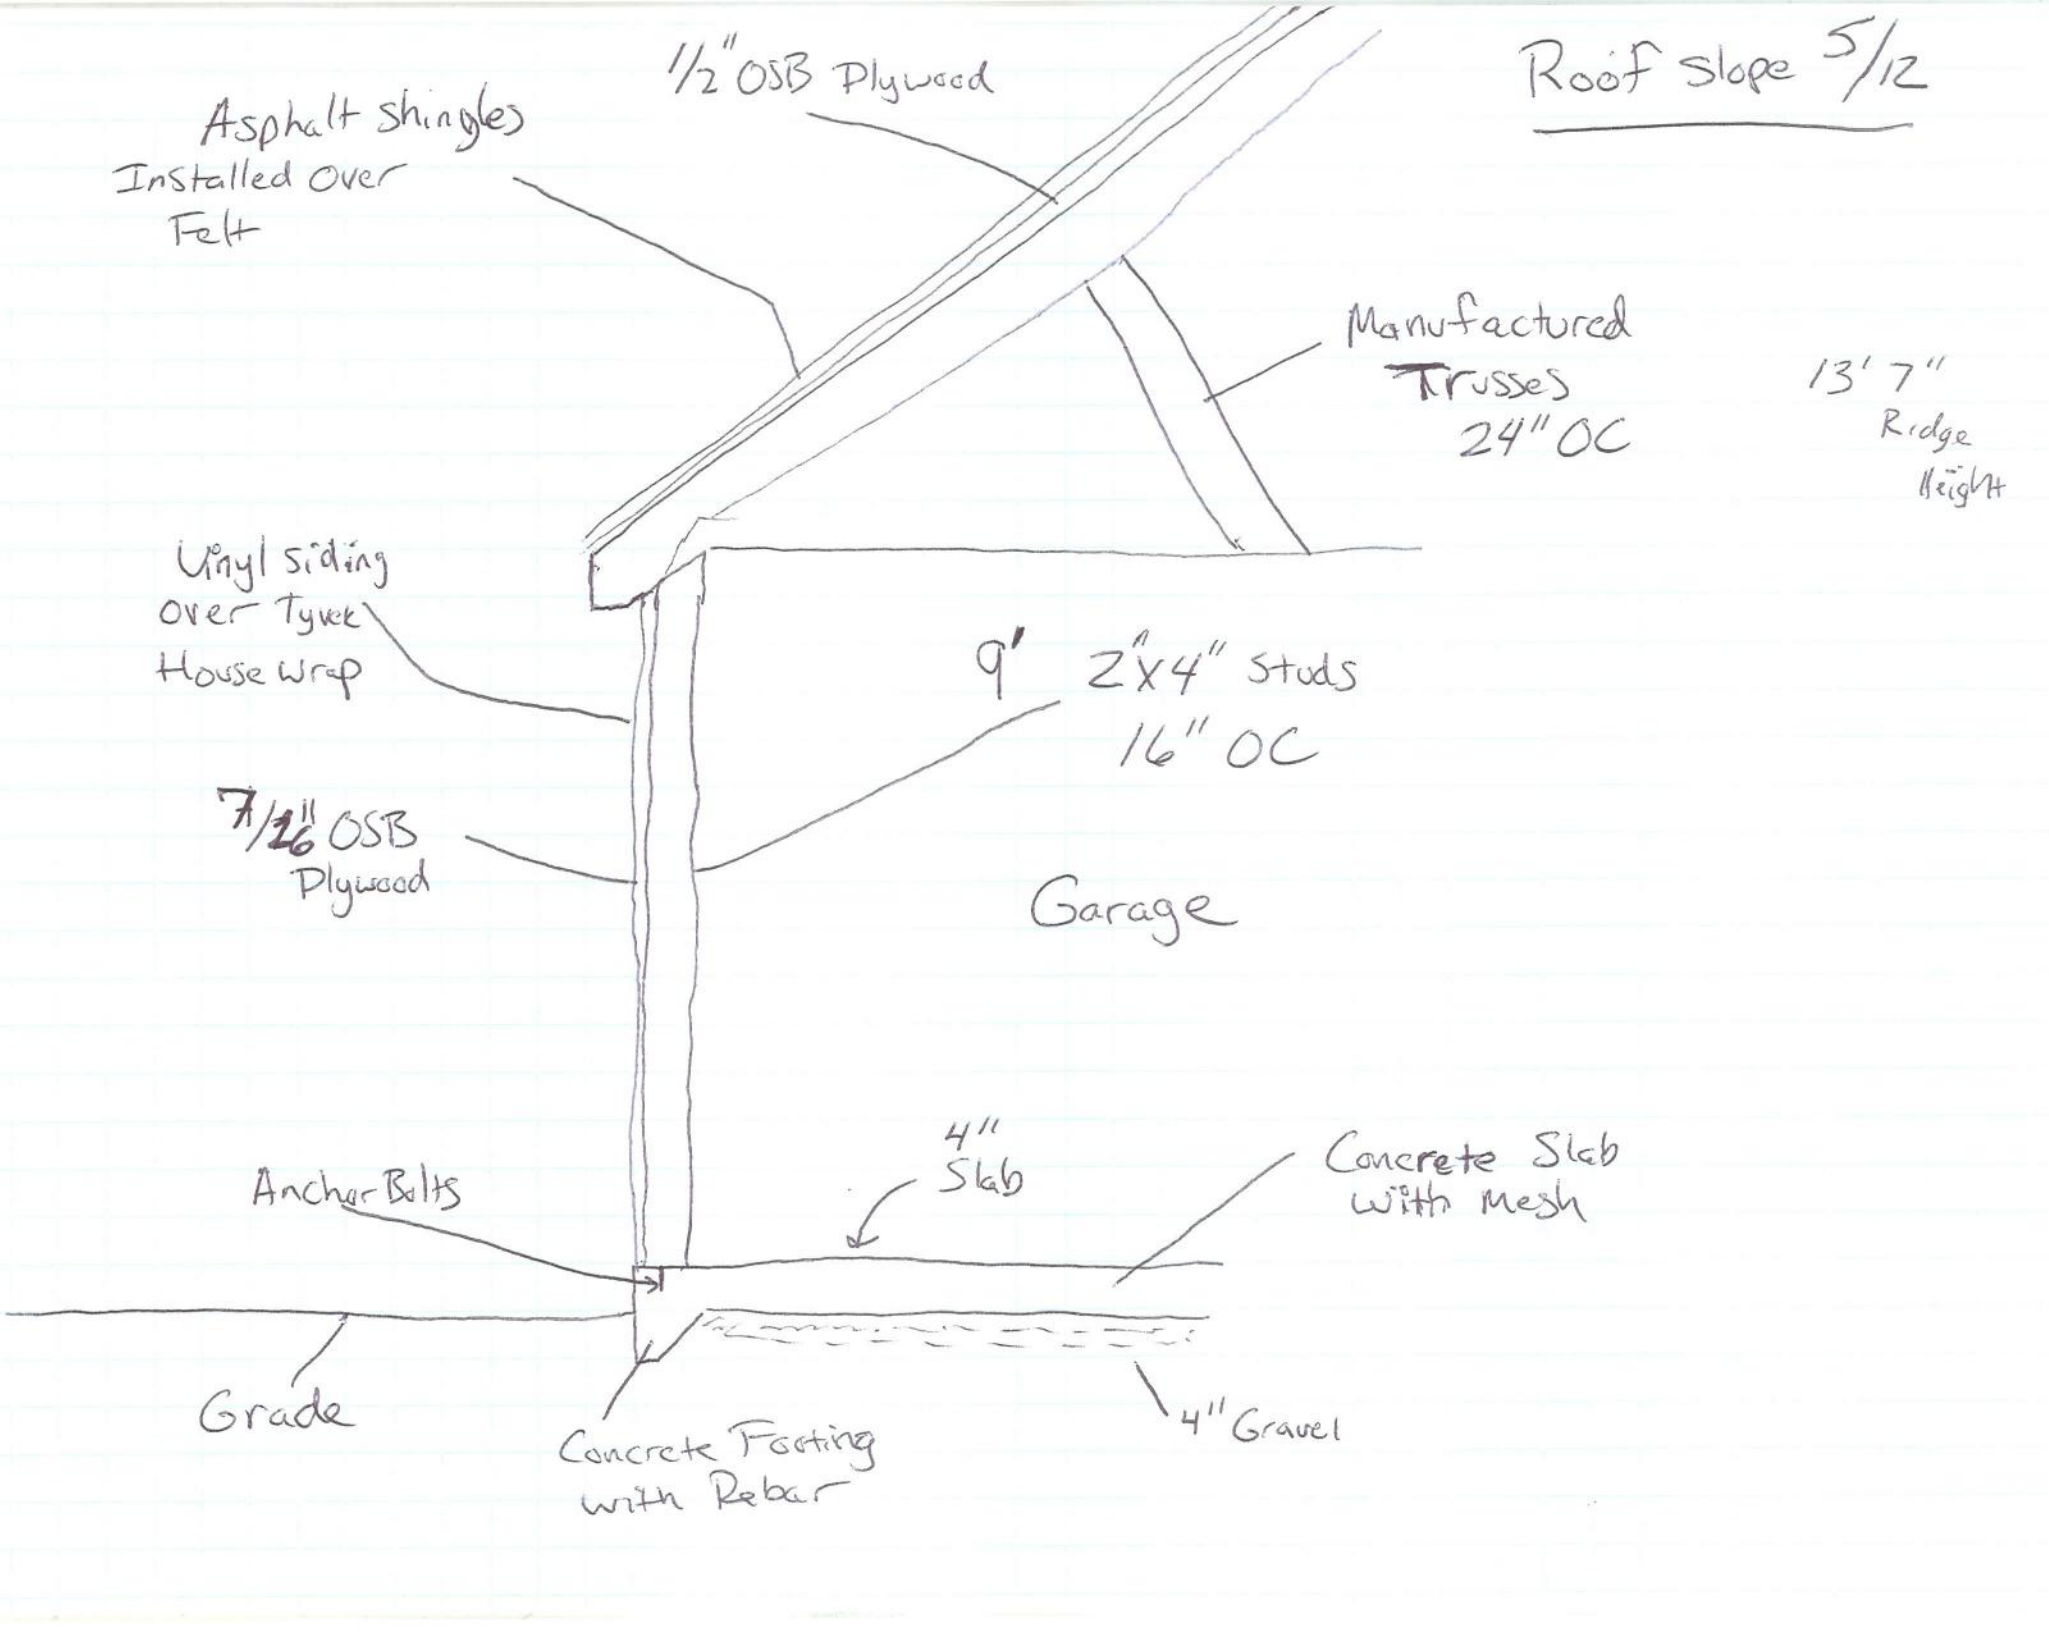 Roof Slope 5/12
1/2" OSB Plywood
Asphalt Shingles
Installed Over
Felt
Manufactured
Trusses
24" OC
13' 7"
Ridge
Height
Vinyl Siding
over Tyvek
House wrap
9' 2"x4" Studs
16" OC
7/16" OSB
Plywood
Garage
4"
Slab
Concrete Slab
with Mesh
Anchor Bolts
Grade
Concrete Footing
with Rebar
4" Gravel